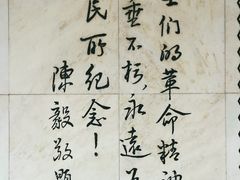 们的革命精神
垂不朽,永远
民所纪念!
陈毅敬题